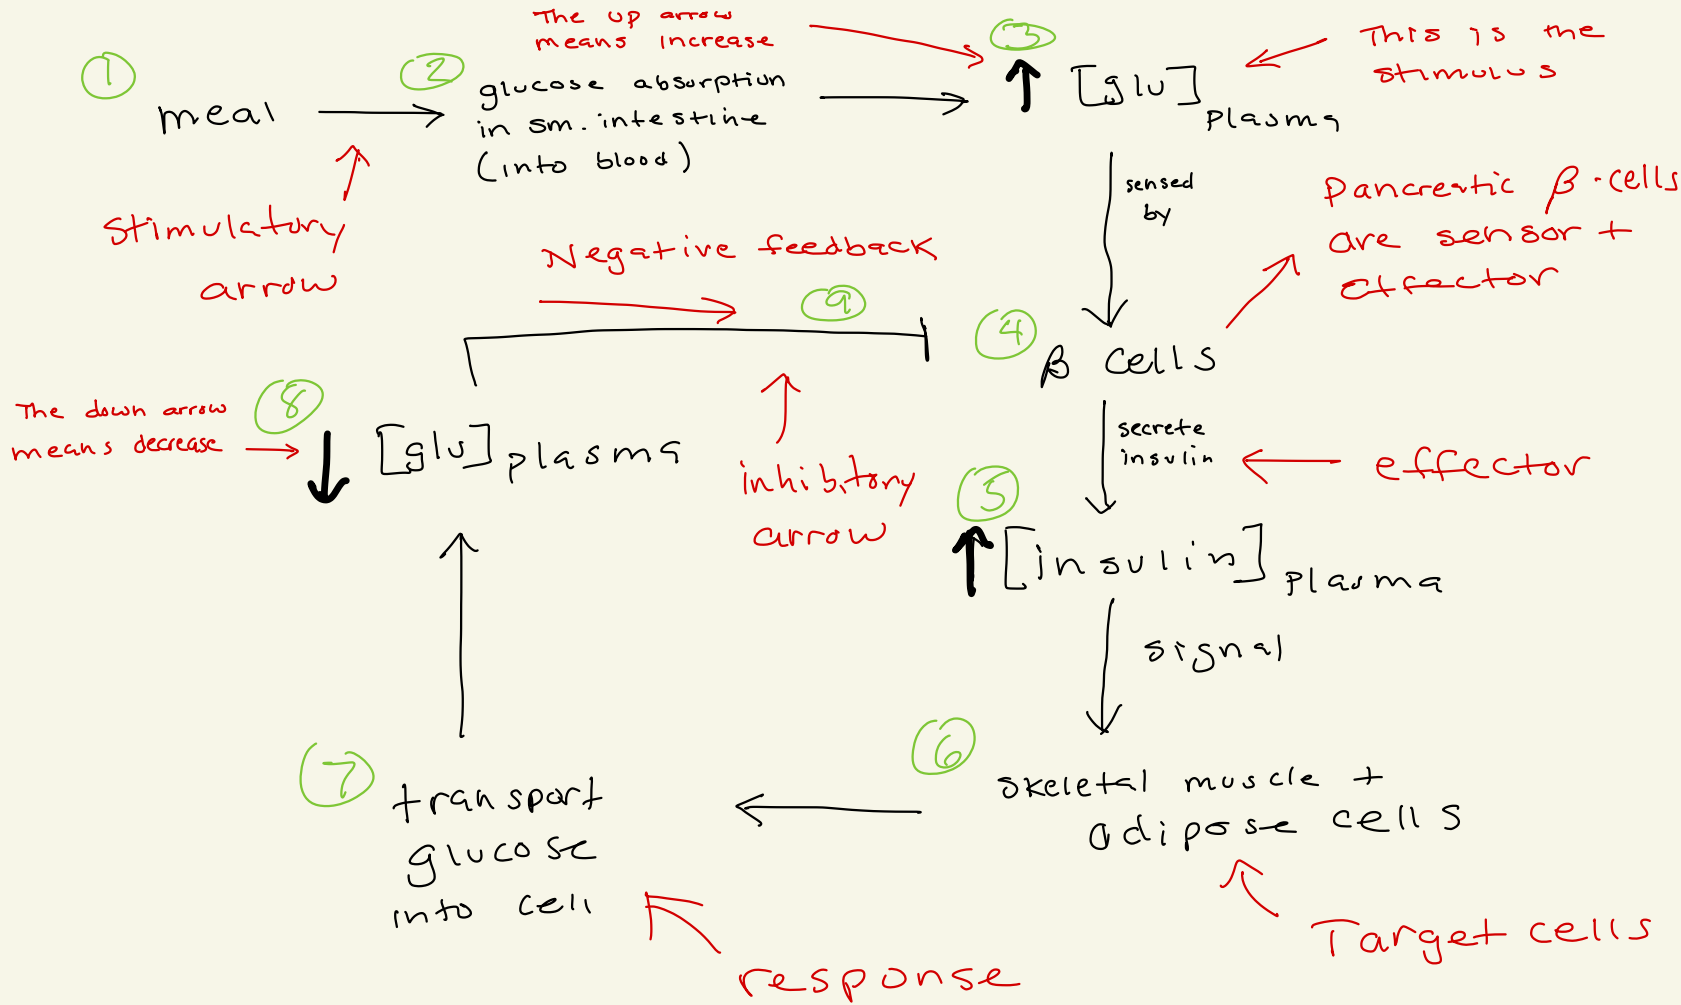 The up arrow
means increase
①
meal
②
glucose absorption
in sm. intestine
(into blood)
③
↑ [glu] plasma
This is the
stimulus
stimulatory
arrow
sensed
by
Pancreatic β-cells
are sensor +
effector
Negative feedback
⑨
④
β cells
The down arrow
means decrease
⑧
↓ [glu] plasma
inhibitory
arrow
secrete
insulin
effector
⑤
↑ [insulin] plasma
signal
⑥
skeletal muscle +
adipose cells
Target cells
⑦
transport
glucose
into cell
response